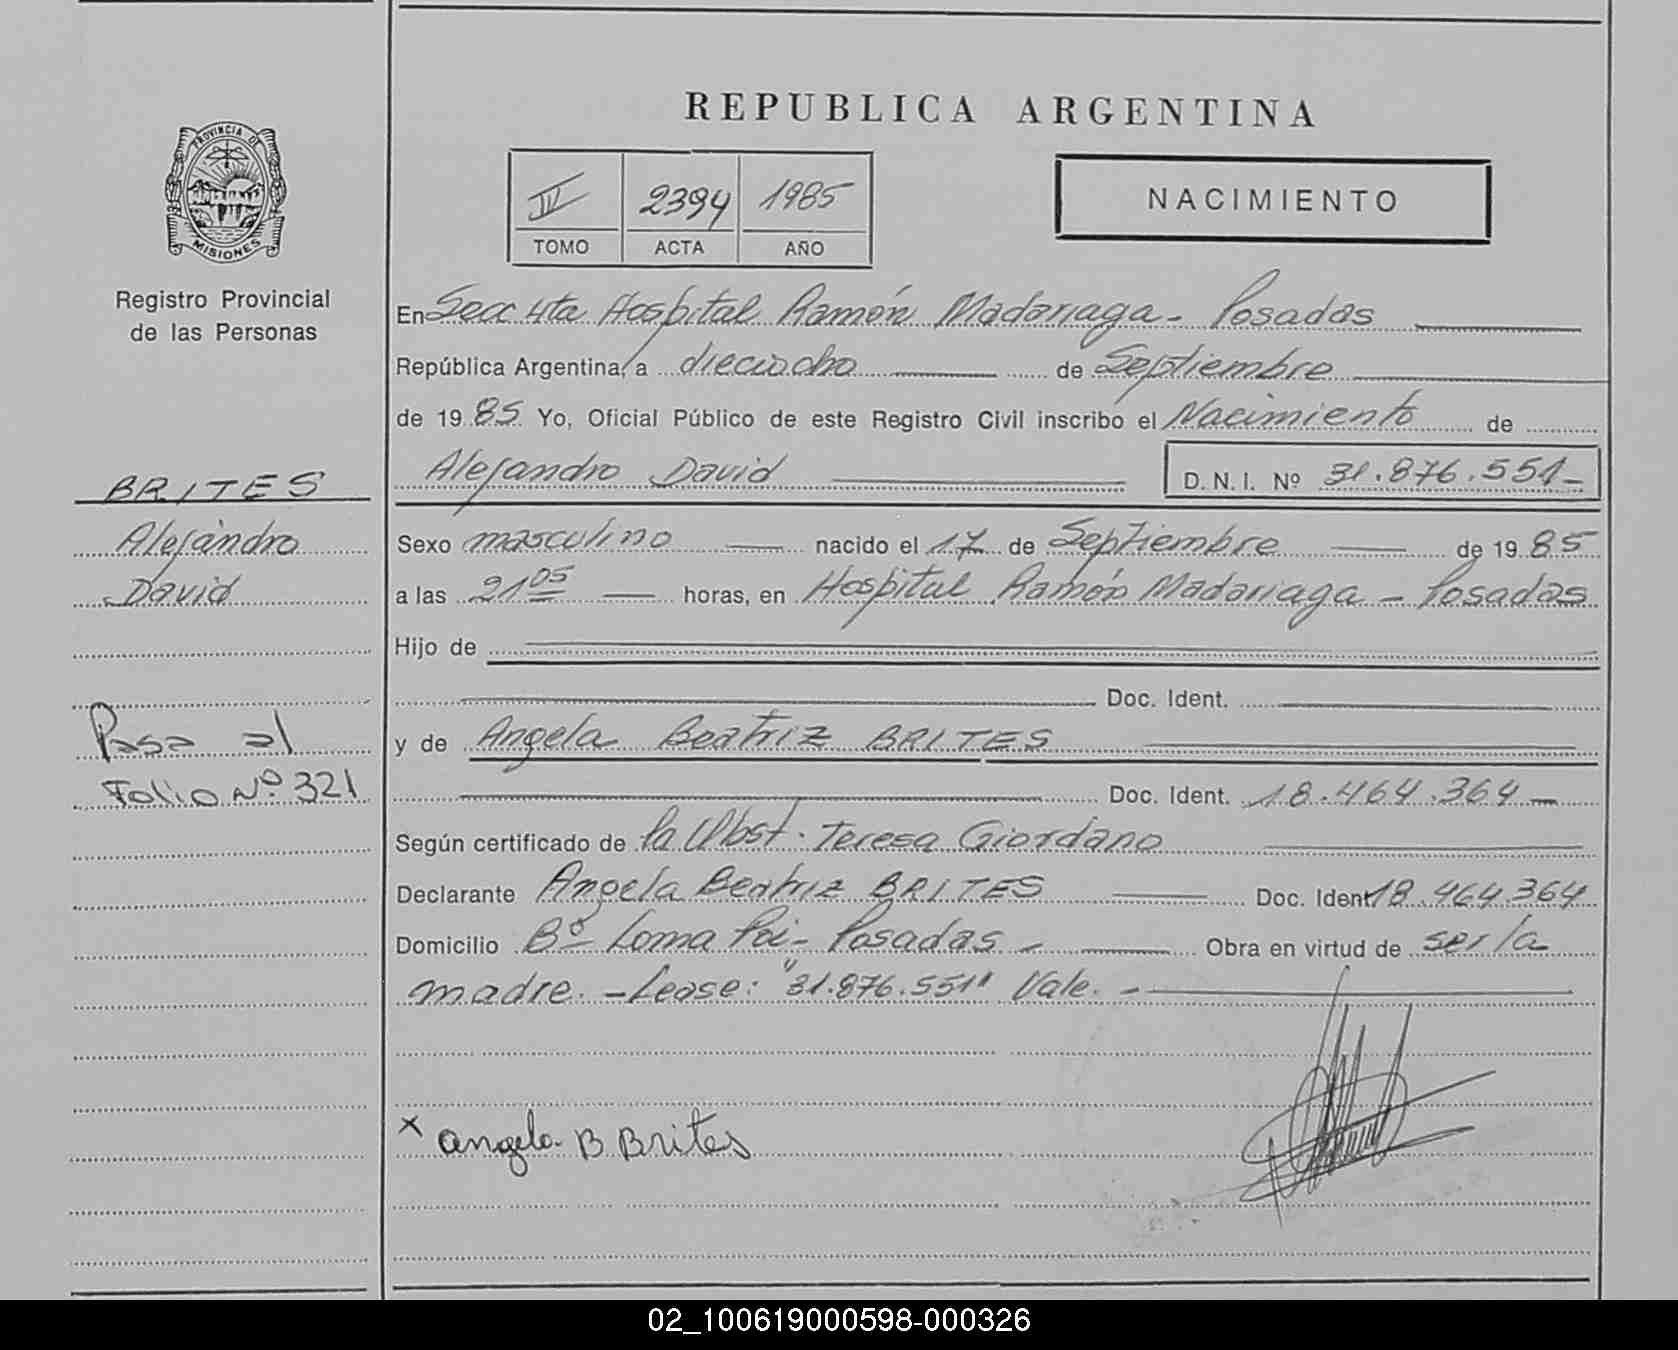 REPUBLICA ARGENTINA
PROVINCIA DE
MISIONES
Registro Provincial
de las Personas
IV 2394 1985
TOMO ACTA AÑO
NACIMIENTO
En Secc 4ta Hospital Ramón Madariaga - Posadas
República Argentina, a dieciocho de Septiembre
de 19 85 Yo, Oficial Público de este Registro Civil inscribo el Nacimiento de
Alejandro David D. N. I. Nº 31.876.551-
BRITES
Alejandro
David
Sexo masculino nacido el 17 de Septiembre de 19 85
a las 21 05 horas, en Hospital Ramón Madariaga - Posadas
Hijo de
Doc. Ident.
Pasa al
Folio Nº 321
y de Angela Beatriz BRITES
Doc. Ident. 18.464.364-
Según certificado de la Obst. Teresa Giordano
Declarante Angela Beatriz BRITES Doc. Ident 18.464.364
Domicilio Bº Loma Poi - Posadas - Obra en virtud de ser la
madre. - Lease: "31.876.551" Vale. -
x angela B Brites
02_100619000598-000326